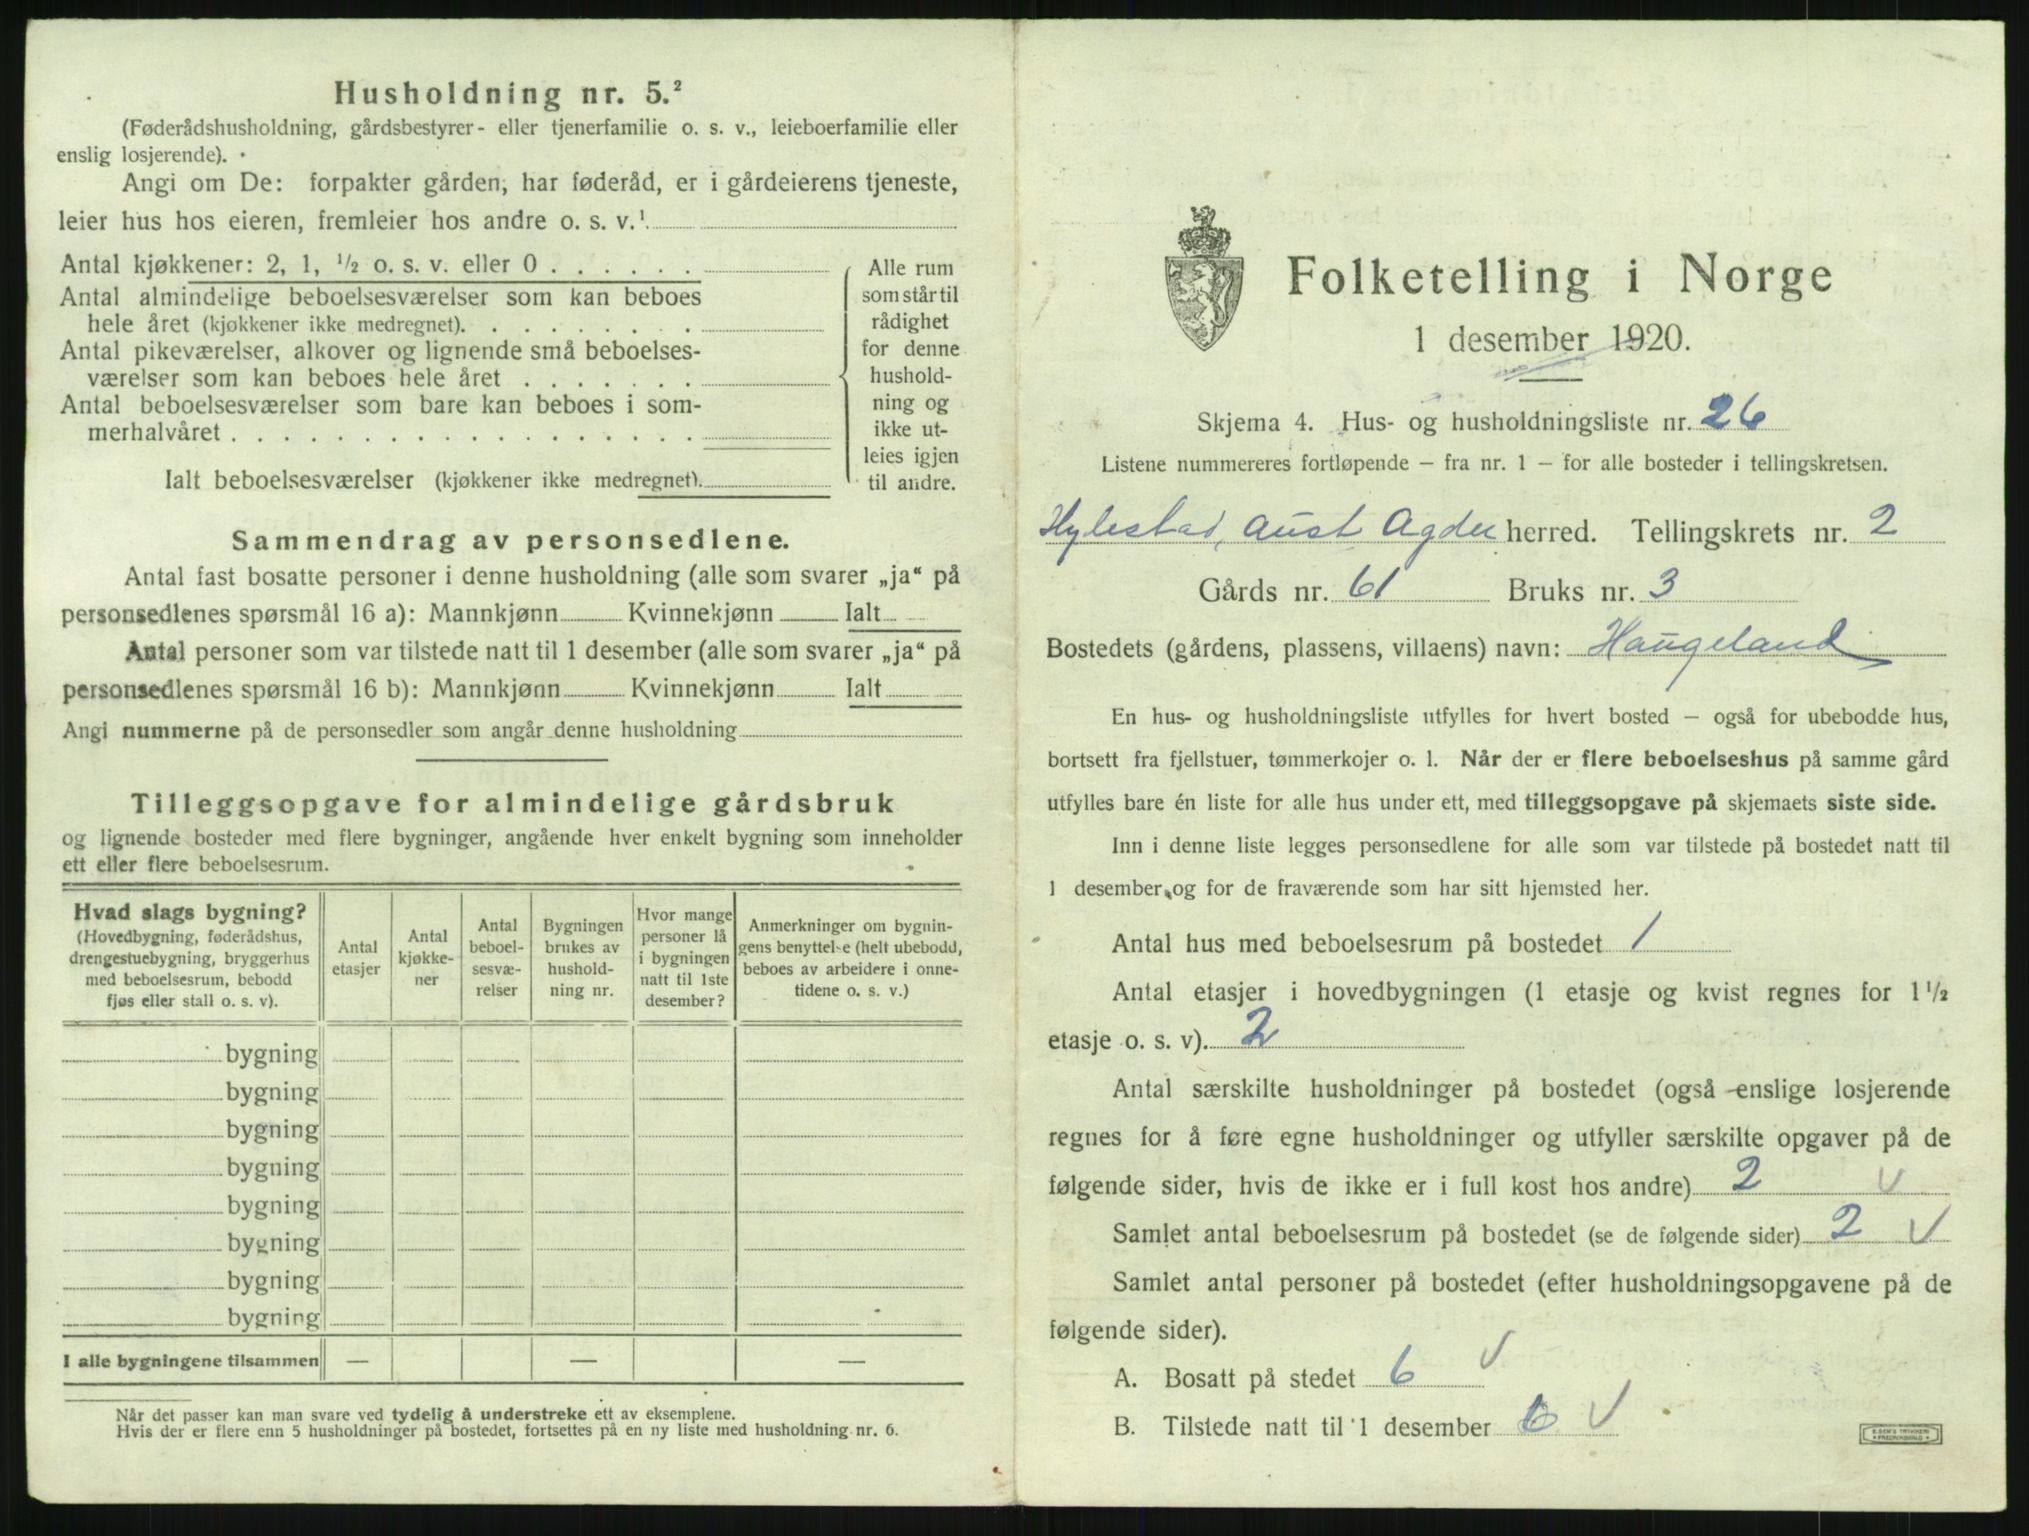 Husholdning nr. 5.²
(Føderådshusholdning, gårdsbestyrer- eller tjenerfamilie o. s. v., leieboerfamilie eller
enslig losjerende).
Angi om De: forpakter gården, har føderåd, er i gårdeierens tjeneste,
leier hus hos eieren, fremleier hos andre o. s. v.¹
Antal kjøkkener: 2, 1, ½ o. s. v. eller 0 . . . . . .
Antal almindelige beboelsesværelser som kan beboes
hele året (kjøkkener ikke medregnet). . . . . . . . .
Antal pikeværelser, alkover og lignende små beboelses-
værelser som kan beboes hele året . . . . . . .
Antal beboelsesværelser som bare kan beboes i som-
merhalvåret . . . . . . . . . . . . . . . . . .
Ialt beboelsesværelser (kjøkkener ikke medregnet).
Alle rum
som står til
rådighet
for denne
hushold-
ning og
ikke ut-
leies igjen
til andre.
Sammendrag av personsedlene.
Antal fast bosatte personer i denne husholdning (alle som svarer „ja“ på
personsedlenes spørsmål 16 a): Mannkjønn Kvinnekjønn Ialt
Antal personer som var tilstede natt til 1 desember (alle som svarer „ja“ på
personsedlenes spørsmål 16 b): Mannkjønn Kvinnekjønn Ialt
Angi nummerne på de personsedler som angår denne husholdning
Tilleggsopgave for almindelige gårdsbruk
og lignende bosteder med flere bygninger, angående hver enkelt bygning som inneholder
ett eller flere beboelsesrum.
Hvad slags bygning?
(Hovedbygning, føderådshus,
drengestuebygning, bryggerhus
med beboelsesrum, bebodd
fjøs eller stall o. s. v).
Antal
etasjer
Antal
kjøkke-
ner
Antal
beboel-
sesvæ-
relser
Bygningen
brukes av
hushold-
ning nr.
Hvor mange
personer lå
i bygningen
natt til 1ste
desember?
Anmerkninger om bygnin-
gens benyttelse (helt ubebodd,
beboes av arbeidere i onne-
tidene o. s. v.)
bygning
bygning
bygning
bygning
bygning
bygning
bygning
bygning
I alle bygningene tilsammen — — —
Når det passer kan man svare ved tydelig å understreke ett av eksemplene.
Hvis der er flere enn 5 husholdninger på bostedet, fortsettes på en ny liste med husholdning nr. 6.
Folketelling i Norge
1 desember 1920.
Skjema 4. Hus- og husholdningsliste nr. 26
Listene nummereres fortløpende – fra nr. 1 – for alle bosteder i tellingskretsen.
Hylestad, Aust Agder herred. Tellingskrets nr. 2
Gårds nr. 61 Bruks nr. 3
Bostedets (gårdens, plassens, villaens) navn: Haugeland
En hus- og husholdningsliste utfylles for hvert bosted – også for ubebodde hus,
bortsett fra fjellstuer, tømmerkojer o. l. Når der er flere beboelseshus på samme gård
utfylles bare én liste for alle hus under ett, med tilleggsopgave på skjemaets siste side.
Inn i denne liste legges personsedlene for alle som var tilstede på bostedet natt til
1 desember og for de fraværende som har sitt hjemsted her.
Antal hus med beboelsesrum på bostedet 1
Antal etasjer i hovedbygningen (1 etasje og kvist regnes for 1½
etasje o. s. v). 2
Antal særskilte husholdninger på bostedet (også enslige losjerende
regnes for å føre egne husholdninger og utfyller særskilte opgaver på de
følgende sider, hvis de ikke er i full kost hos andre) 2 v
Samlet antal beboelsesrum på bostedet (se de følgende sider) 2 v
Samlet antal personer på bostedet (efter husholdningsopgavene på de
følgende sider).
A. Bosatt på stedet 6 v
B. Tilstede natt til 1 desember 6 v